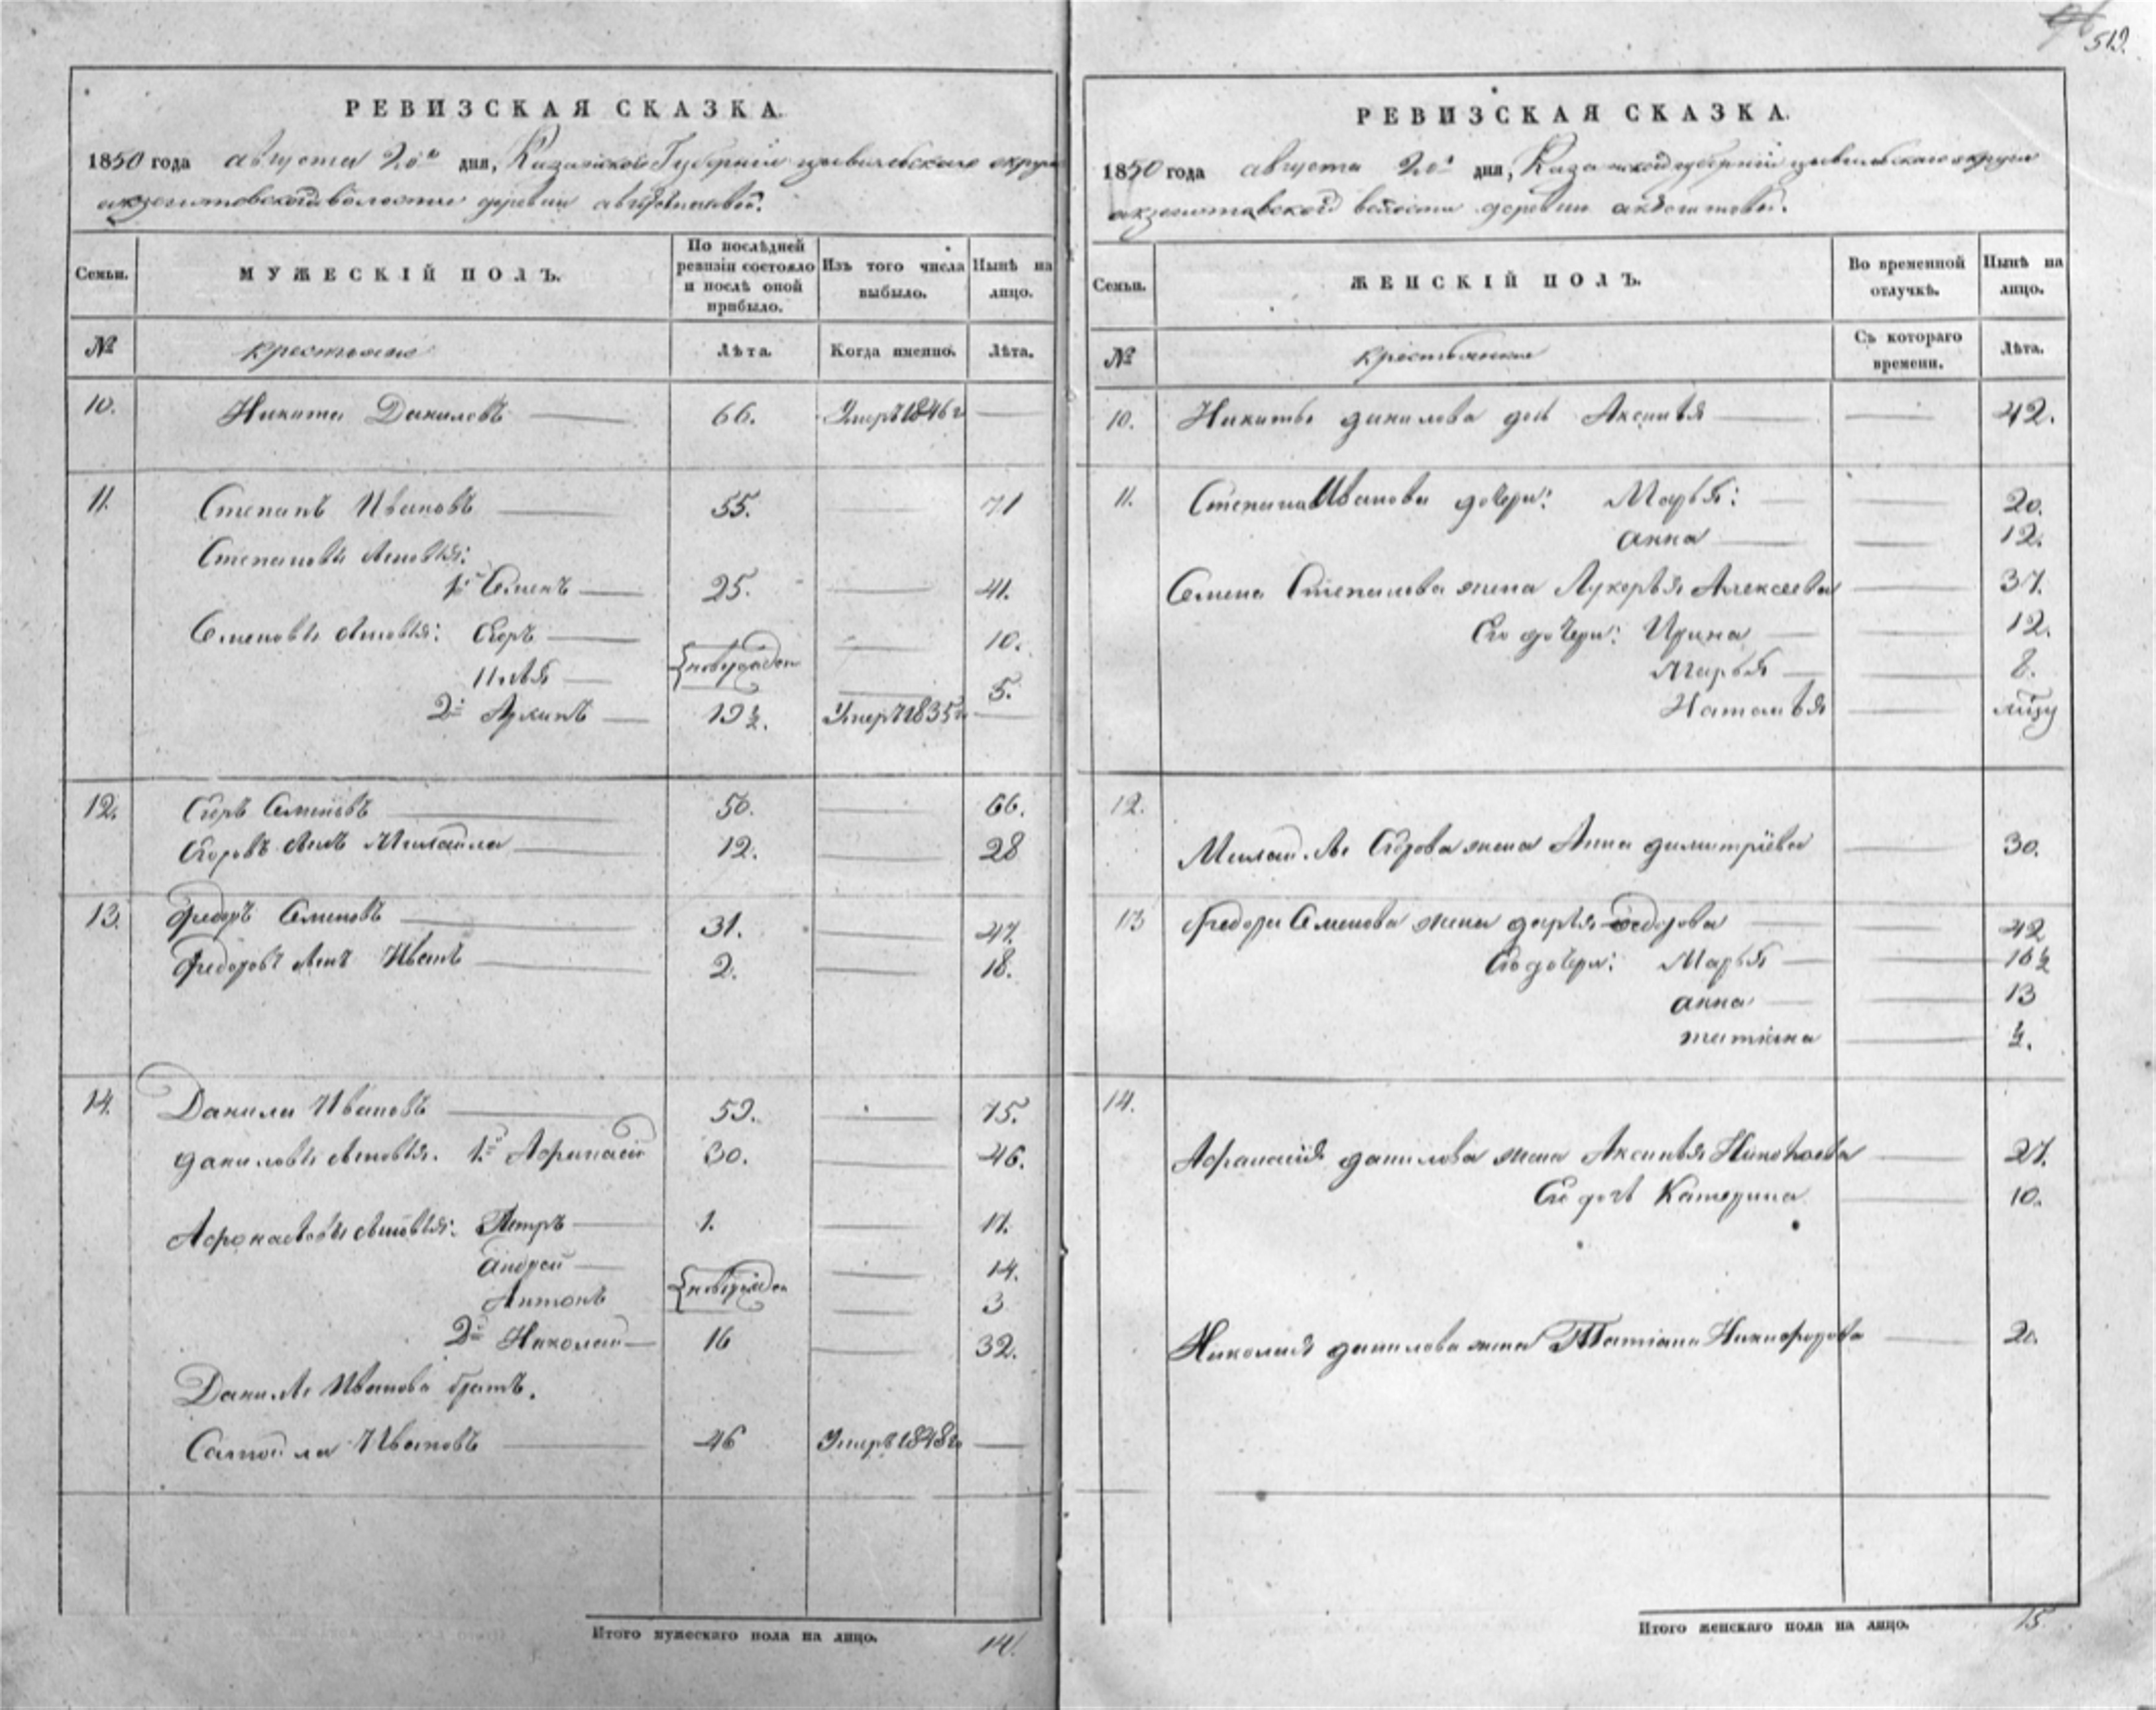 519.
РЕВИЗСКАЯ СКАЗКА.
1850 года августа 20го дня, Казанской Губернии цывильскаго округа
волости деревни
Семьи.
МУЖЕСКІЙ ПОЛЪ.
По послѣдней ревизіи состояло и послѣ оной прибыло.
Изъ того числа выбыло.
Нынѣ на лицо.
№
крестьяне
Лѣта.
Когда именно.
Лѣта.
10. Никита Даниловъ 66. Умеръ 1846 г
11. Степанъ Ивановъ 55. 71
Степановы сыновья:
1й Семенъ 25. 41.
Семеновы сыновья: Егоръ новорожден 10.
Илья 5.
2й Лукинъ 19½. Умеръ 1835 г
12. Егоръ Семеновъ 50. 66.
Егоровъ сынъ Михайла 12. 28
13. Федоръ Семеновъ 31. 47.
Федоровъ сынъ Иванъ 2. 18.
14. Данила Ивановъ 59. 75.
Даниловы сыновья. 1й Афанасій 30. 46.
Афонасьевы сыновья: Петръ 1. 17.
Андрей новорожден 14.
Антонъ 3
2й Николай 16 32.
Данилы Иванова братъ.
Самойла Ивановъ 46 Умеръ 1848 г
Итого мужескаго пола на лицо. 14.
РЕВИЗСКАЯ СКАЗКА.
1850 года августа 20го дня, Казанской губерніи цывильскаго округа
волости деревни
Семьи.
ЖЕНСКІЙ ПОЛЪ.
Во временной отлучкѣ.
Нынѣ на лицо.
№
крестьянки
Съ котораго времени.
Лѣта.
10. Никиты данилова дочь Аксинья 42.
11. Степана Иванова дочери: Марья: 20.
анна 12.
Семена Степанова жена Лукерья Алексеева 37.
Его дочери: Ирина 12.
Марья 8.
Наталья
12.
Михайлы Егорова жена Анна димитріева 30.
13 Федора Семенова жена дарья федорова 42
Его дочери: Марья 16½
анна 13
татіана ½.
14.
Афанасія данилова жена Аксинья 27.
Его дочь Катерина 10.
Николая данилова жена Татіана Никифорова 20.
Итого женскаго пола на лицо. 15